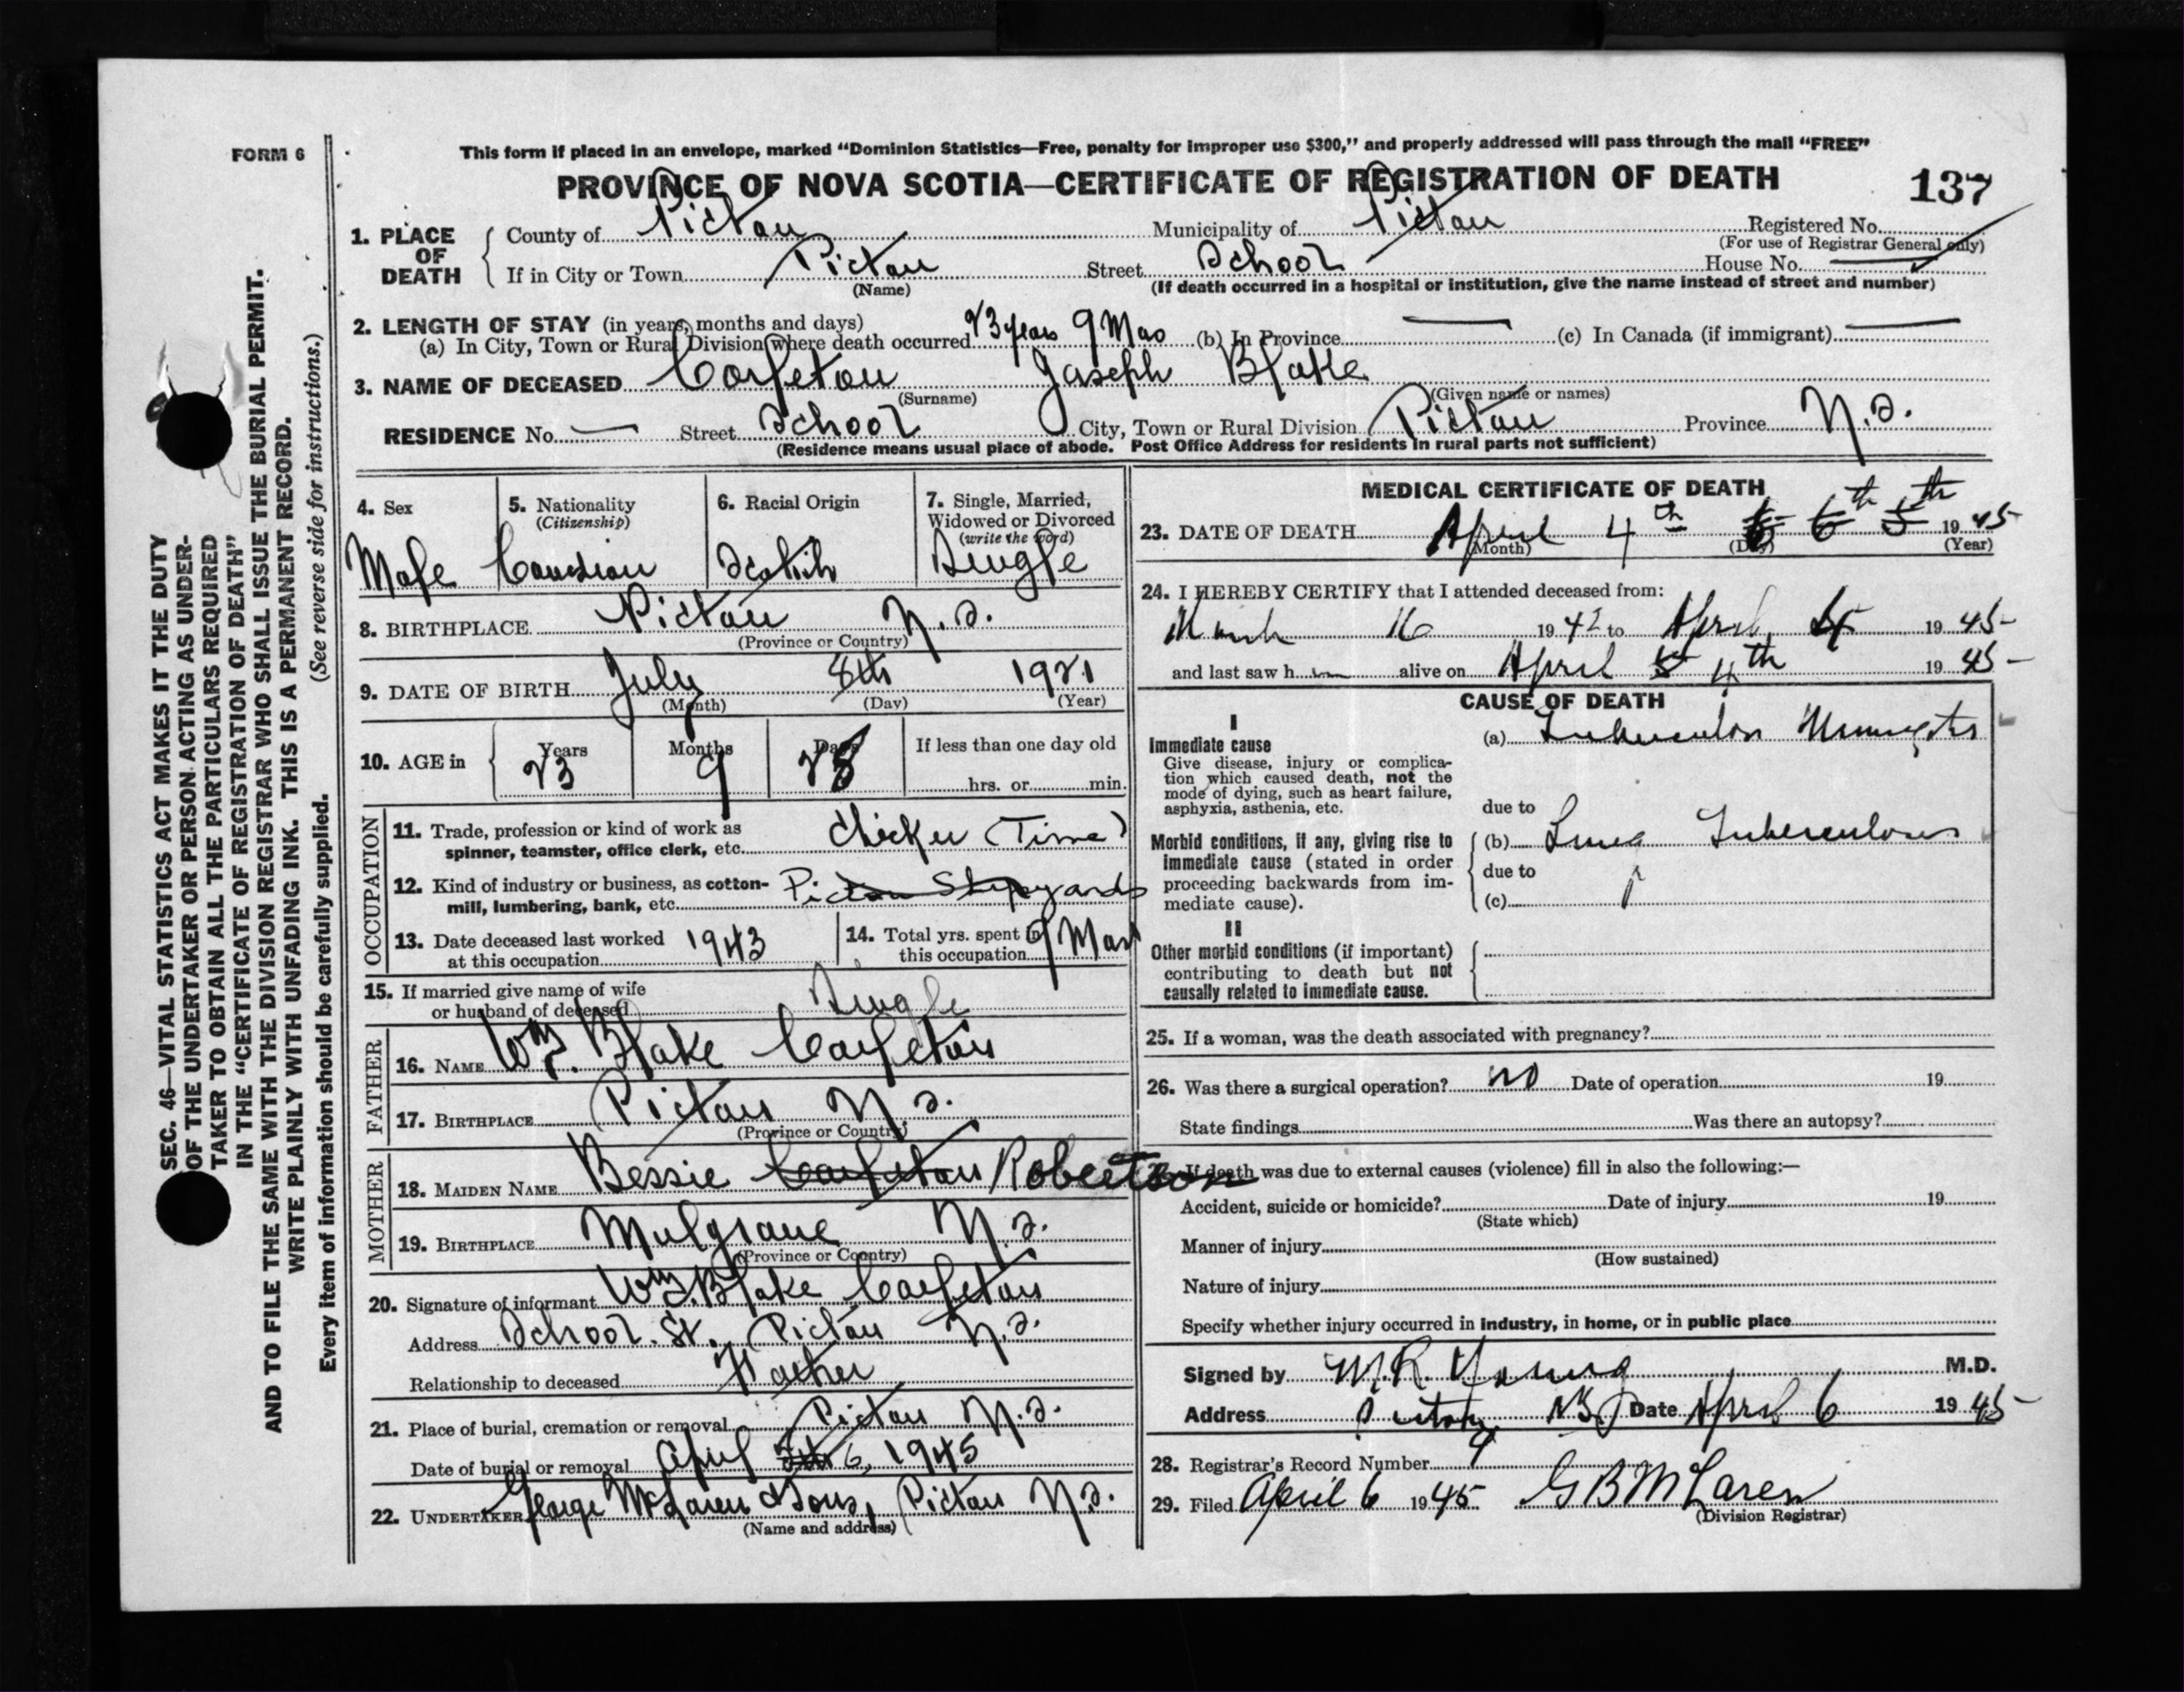 FORM 6
This form if placed in an envelope, marked "Dominion Statistics—Free, penalty for improper use $300," and properly addressed will pass through the mail "FREE"
PROVINCE OF NOVA SCOTIA—CERTIFICATE OF REGISTRATION OF DEATH 137
1. PLACE OF DEATH County of Pictou Municipality of Pictou Registered No.
(For use of Registrar General only)
If in City or Town Pictou Street School House No.
(Name) (If death occurred in a hospital or institution, give the name instead of street and number)
2. LENGTH OF STAY (in years, months and days)
(a) In City, Town or Rural Division where death occurred 23 years 9 Mos (b) In Province (c) In Canada (if immigrant)
3. NAME OF DECEASED Carleton Joseph Blake
(Surname) (Given name or names)
RESIDENCE No. Street School City, Town or Rural Division Pictou Province N.S.
(Residence means usual place of abode. Post Office Address for residents in rural parts not sufficient)
4. Sex 5. Nationality (Citizenship) 6. Racial Origin 7. Single, Married, Widowed or Divorced (write the word)
Male Canadian Scotish Single
8. BIRTHPLACE Pictou N.S.
(Province or Country)
9. DATE OF BIRTH July 8th 1921
(Month) (Day) (Year)
10. AGE in Years Months Days If less than one day old
23 9 28 hrs. or min.
OCCUPATION
11. Trade, profession or kind of work as spinner, teamster, office clerk, etc. Checker (Time)
12. Kind of industry or business, as cotton-mill, lumbering, bank, etc. Pictou Shipyards
13. Date deceased last worked at this occupation 1943
14. Total yrs. spent in this occupation 9 Mos
15. If married give name of wife or husband of deceased Single
FATHER
16. NAME Wm. Blake Carleton
17. BIRTHPLACE Pictou N.S.
(Province or Country)
MOTHER
18. MAIDEN NAME Bessie Carleton Robertson
19. BIRTHPLACE Mulgrave N.S.
(Province or Country)
20. Signature of informant Wm. Blake Carleton
Address School St. Pictou N.S.
Relationship to deceased Father
21. Place of burial, cremation or removal Pictou N.S.
Date of burial or removal April 6, 1945
22. UNDERTAKER George McLaren & Sons, Pictou N.S.
(Name and address)
MEDICAL CERTIFICATE OF DEATH
23. DATE OF DEATH April 4th 6th 5th 1945
(Month) (Day) (Year)
24. I HEREBY CERTIFY that I attended deceased from:
March 16 1942 to April 4 1945
and last saw him alive on April 5 4th 1945
CAUSE OF DEATH
I
Immediate cause
Give disease, injury or complication which caused death, not the mode of dying, such as heart failure, asphyxia, asthenia, etc.
(a) Tuberculous Meningitis
due to
Morbid conditions, if any, giving rise to immediate cause (stated in order proceeding backwards from immediate cause).
(b) Lung Tuberculosis
due to
(c)
II
Other morbid conditions (if important) contributing to death but not causally related to immediate cause.
25. If a woman, was the death associated with pregnancy?
26. Was there a surgical operation? no Date of operation 19
State findings Was there an autopsy?
If death was due to external causes (violence) fill in also the following:—
Accident, suicide or homicide? Date of injury 19
(State which)
Manner of injury
(How sustained)
Nature of injury
Specify whether injury occurred in industry, in home, or in public place
Signed by M.R. Young M.D.
Address Pictou N.S. Date April 6 1945
28. Registrar's Record Number 9
29. Filed April 6 1945 G B McLaren
(Division Registrar)
SEC. 46—VITAL STATISTICS ACT MAKES IT THE DUTY
OF THE UNDERTAKER OR PERSON ACTING AS UNDER-
TAKER TO OBTAIN ALL THE PARTICULARS REQUIRED
IN THE "CERTIFICATE OF REGISTRATION OF DEATH"
AND TO FILE THE SAME WITH THE DIVISION REGISTRAR WHO SHALL ISSUE THE BURIAL PERMIT.
WRITE PLAINLY WITH UNFADING INK. THIS IS A PERMANENT RECORD.
Every item of information should be carefully supplied. (See reverse side for instructions.)